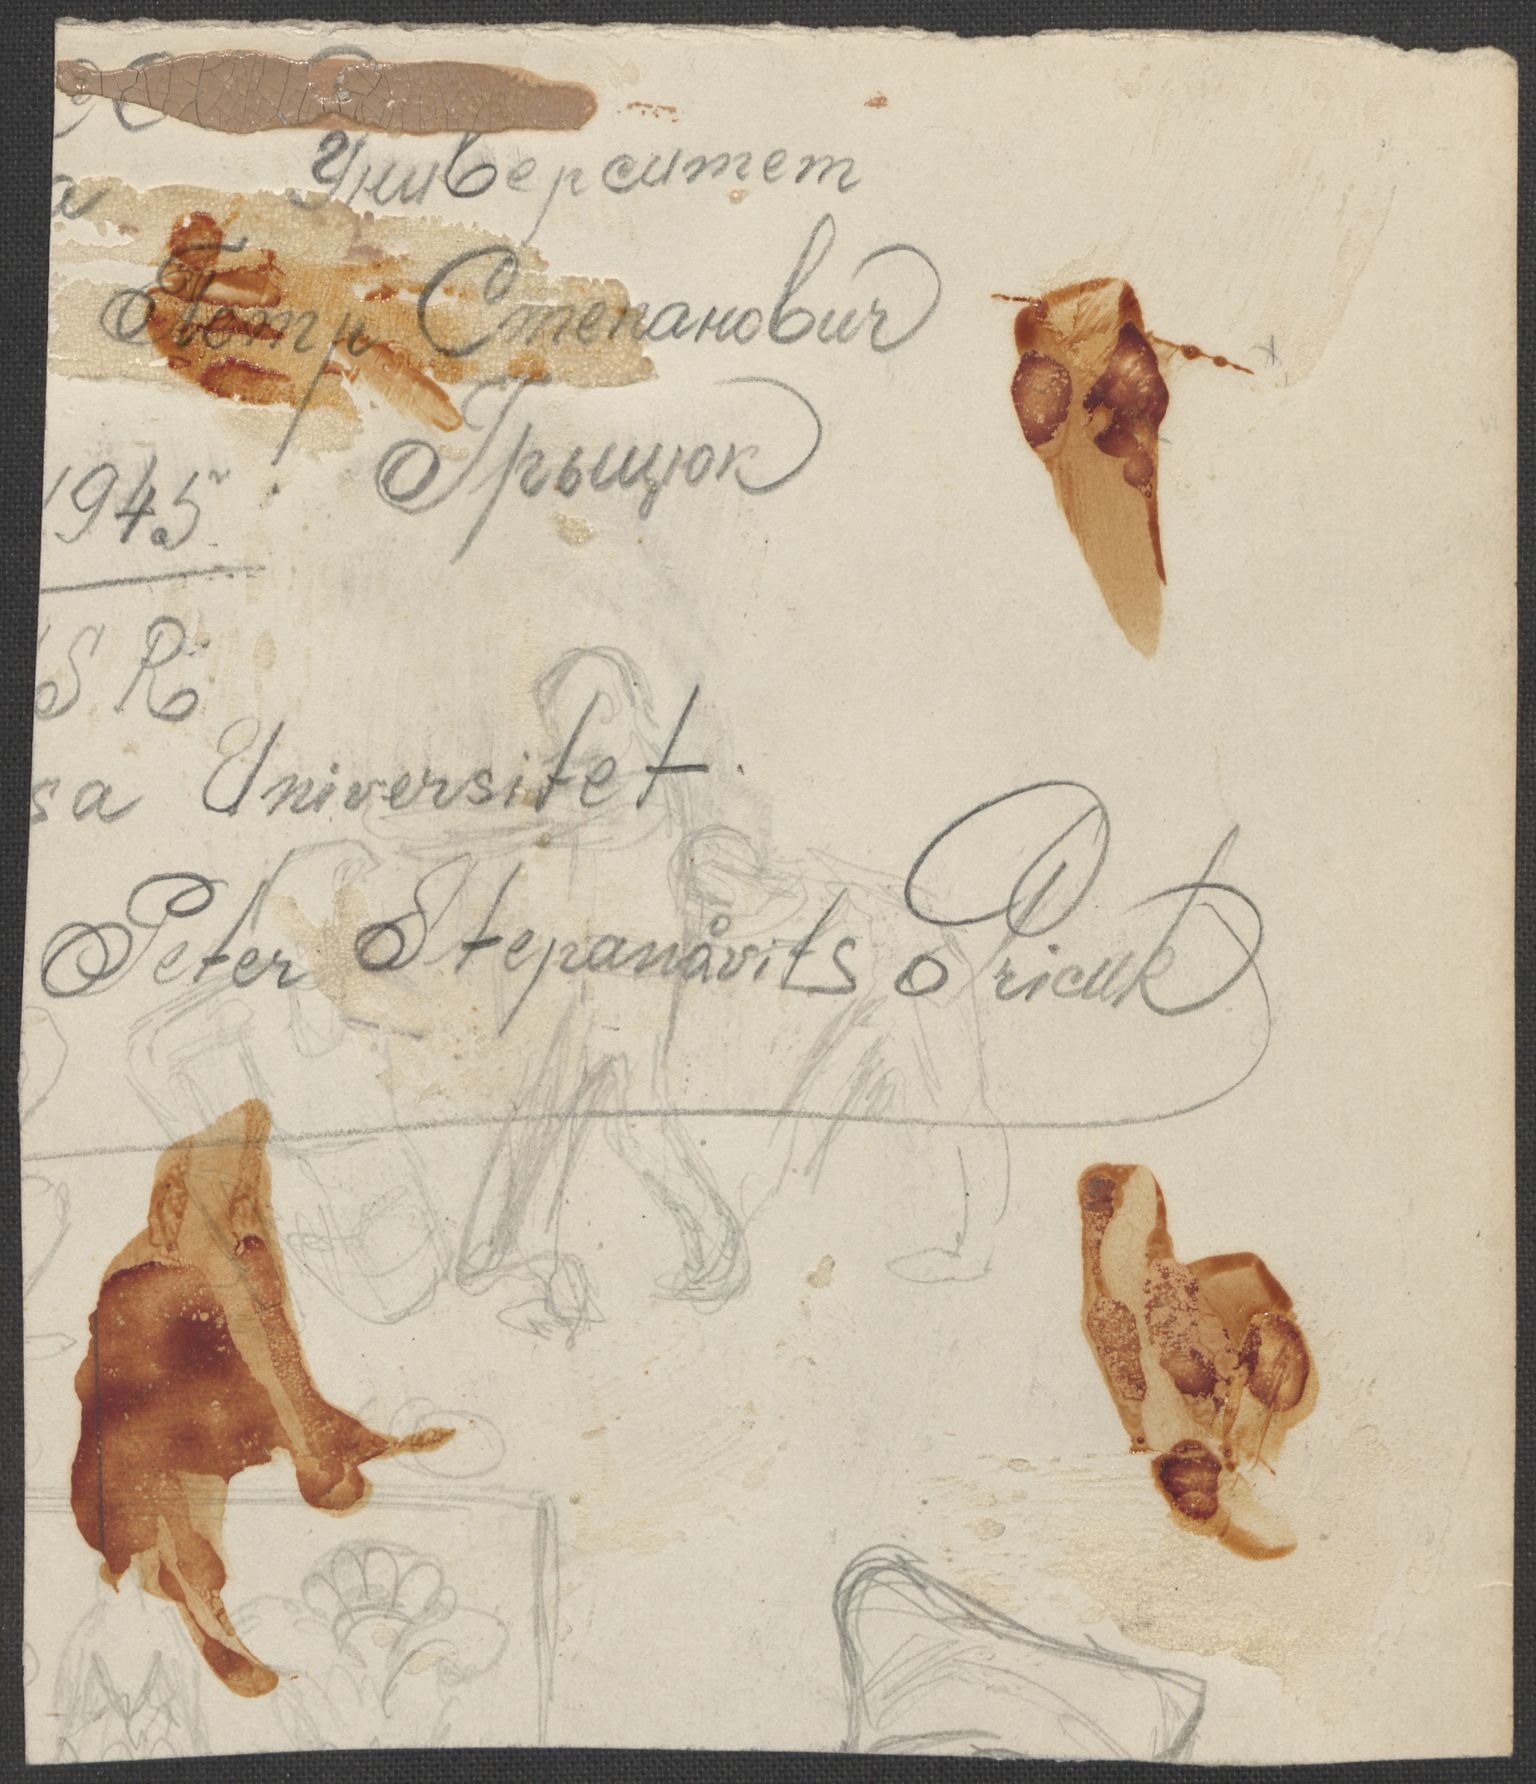 СС С
а Университет
Петр Степанович
Грыщюк
1945 г.
SR
sa Universitet.
Peter Stepanåvits Gricuk